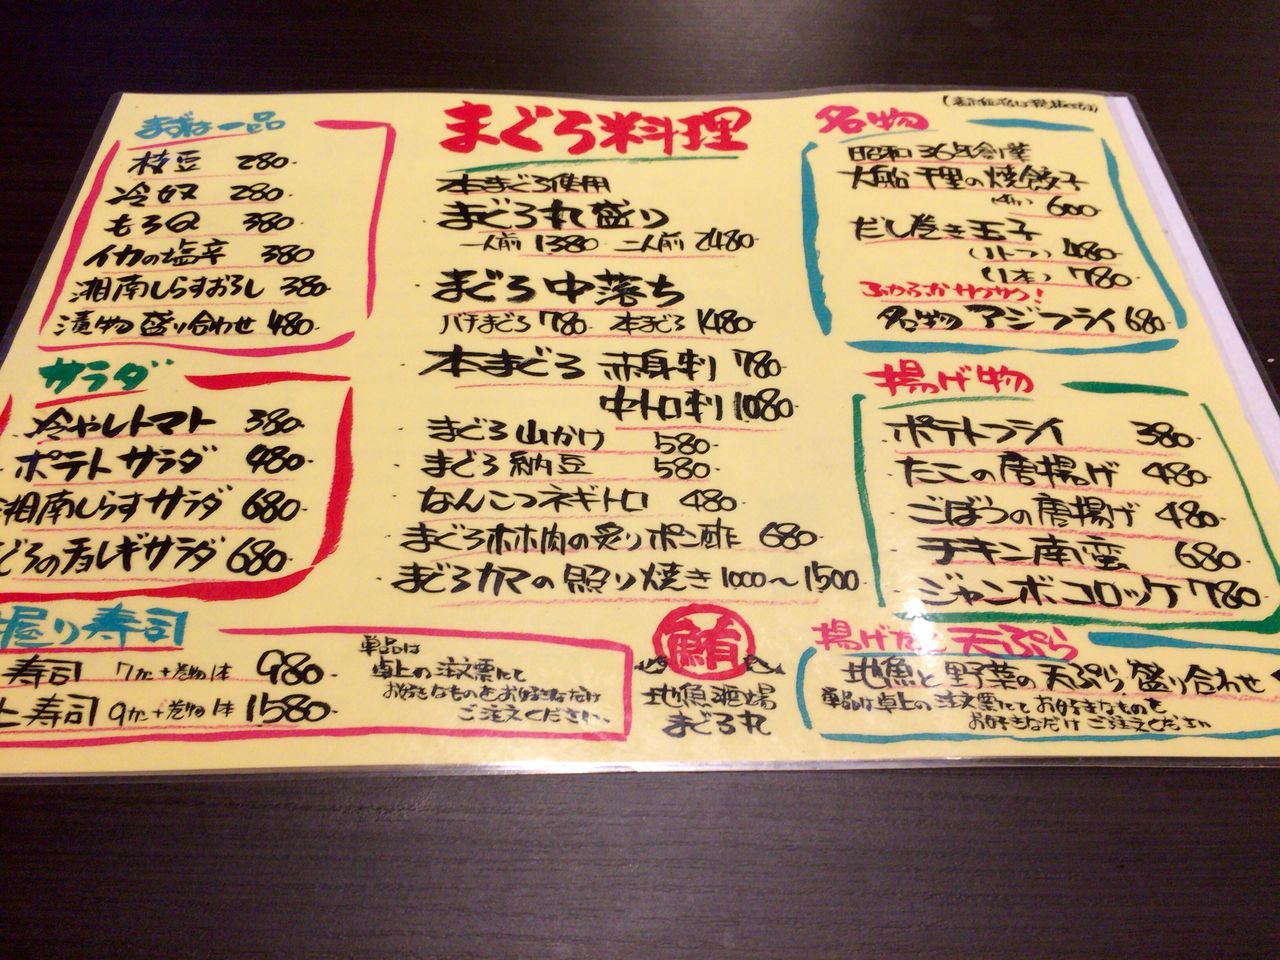 まずは一品
枝豆 280-
冷奴 280-
もろQ 380-
イカの塩辛 380-
湘南しらすおろし 380-
漬物盛り合わせ 480-
サラダ
冷やしトマト 380-
ポテトサラダ 480-
湘南しらすサラダ 680-
ぐろのチョレギサラダ 680-
握り寿司
寿司 7カン+巻物1本 980-
上寿司 9カン+巻物1本 1580-
単品は
卓上の注文票にて
お好きなものをお好きなだけ
ご注文ください。
まぐろ料理
本まぐろ使用
まぐろ丸盛り
一人前 1380- 二人前 2480-
まぐろ中落ち
バチまぐろ 780- 本まぐろ 1480-
本まぐろ 赤身刺 780-
中トロ刺 1080-
まぐろ山かけ 580-
まぐろ納豆 580-
なんこつネギトロ 480-
まぐろホホ肉の炙りポン酢 680-
まぐろカマの照り焼き 1000〜1500-
鮪
地魚酒場
まぐろ丸
名物
昭和36年創業
大船千里の焼餃子
600-
だし巻き玉子
(ハーフ) 480-
(1本) 780-
ふわふわサクサク!
名物アジフライ 680-
揚げ物
ポテトフライ 380-
たこの唐揚げ 480-
ごぼうの唐揚げ 480-
チキン南蛮 680-
ジャンボコロッケ 780-
揚げたて天ぷら
地魚と野菜の天ぷら盛り合わせ
単品は卓上の注文票にてお好きなものを
お好きなだけご注文ください